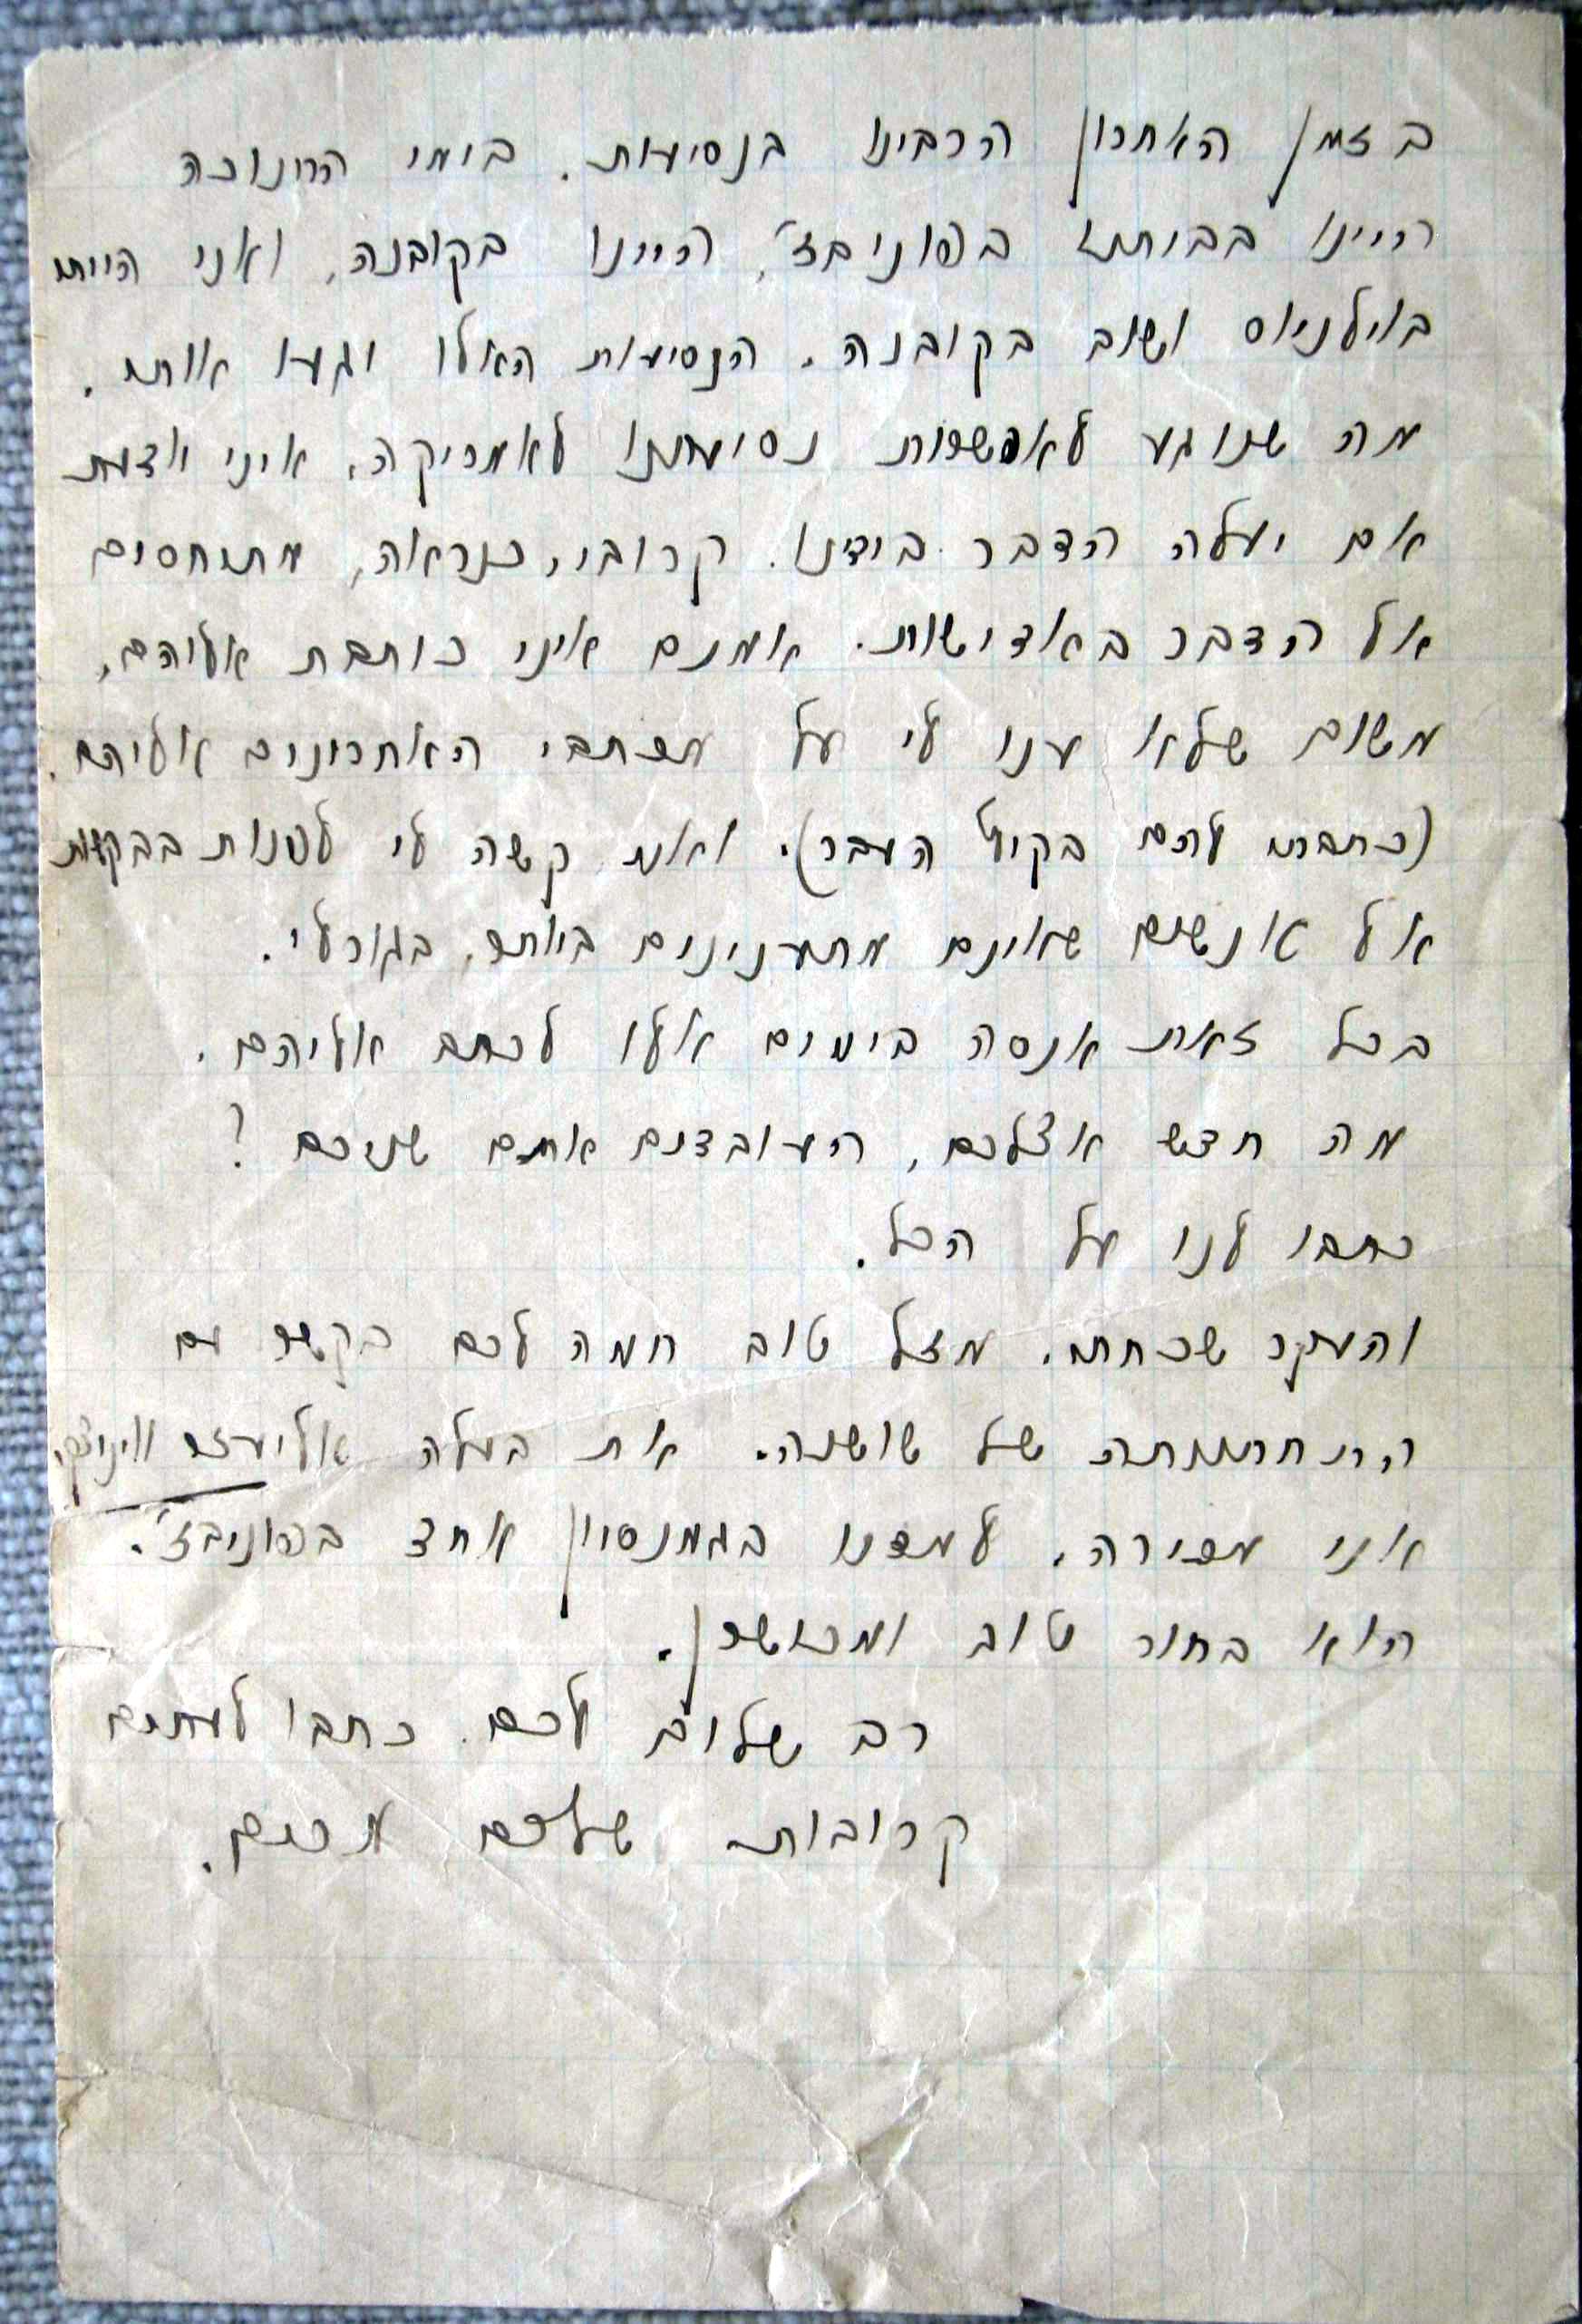 בזמן האחרון הרבינו בנסיעות. בימי החנוכה
היינו בביתנו בפוניבז', היינו בקובנה, ואני הייתי
בוילניוס ושוב בקובנה. הנסיעות האלו יגעו אותי.
מה שנוגע לאפשרות נסיעתנו לאמריקה, איני יודעת
אם יעלה הדבר בידינו. קרובי, כנראה, מתיחסים
אל הדבר באדישות. אמנם איני כותבת אליהם,
משום שלא ענו לי על מכתבי האחרונים אליהם.
(כתבתי להם בקיץ העבר). ואת קשה לי לפנות בבקשות
אל אנשים שאינם מתענינים ביותר, בגורלי.
בכל זאת אנסה בימים אלו לכתב אליהם.
מה חדש אצלכם, העובדים אתם שניכם?
כתבו לנו על הכל.
והעקר שכחתי. מזל טוב חמה לכם בקשר עם
התחתנותה של שושנה. את בעלה אליעזר
אני מכירה. למדנו בגמנסיון אחד בפוניבז'.
הוא בחור טוב ומכושר.
רב שלום לכם. כתבו לעתים
קרובות שלכם